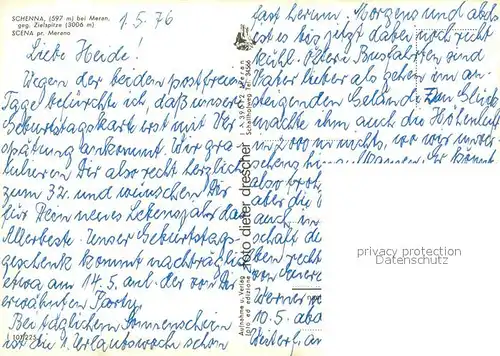 SCHENNA, (597 m) bei Meran,
geg. Zielspitze (3006 m)
SCENA pr. Merano
1.5.76
Liebe Heidi.
Wegen der beiden postfreien
Tage befürchte ich, daß unsere
Geburtstagskarte erst mit Ver-
spätung ankommt. Wir gra-
tulieren Dir also recht herzlich
zum 32. und wünschen Dir
für Dein neues Lebensjahr das
Allerbeste. Unser Geburtstags-
geschenk kommt nachträglich
etwa am 14.5. anl. der von Dir
erwähnten Party.
Bei täglichem Sonnenschein
ist die 1. Urlaubswoche schon
fast herum. Morgens und abends
ist es bis jetzt dabei noch recht
kühl. Öftere Busfahrten sind
Vater lieber als gehen im an-
steigenden Gelände. Zum Glück
machte ihm auch die Höhenluft
in 2000 m nichts, wo wir
also
aber die
auch in
schaft de
ben recht
von
Werner
10.5. ab
foto dieter drescher
Aufnahme u. Verlag
foto ed edizione
I 39012 Meran
Schaffnerweg Tel. 3466
privacy protection
Datenschutz